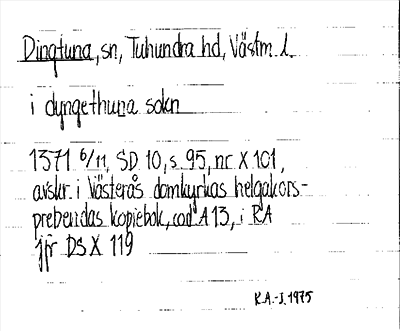 Dingtuna, sn, Tuhundra hd, Västm l.
i dyngethuna sokn
1371 6/11, SD 10, s. 95, nr X 101,
avskr. i Västerås domkyrkas helgakors-
prebendas kopiebok, cod A 13, i RA
jfr DS X 119
K.A.-J. 1975